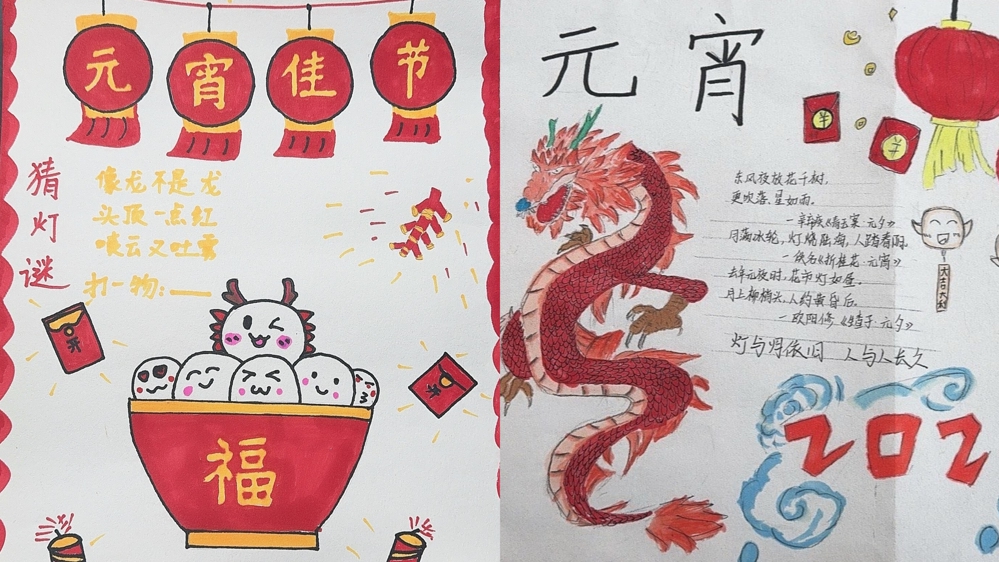 元宵佳节
猜灯谜
像龙不是龙
头顶一点红
吸云又吐雾
打一物:
开
福
元宵
羊
羊
东风夜放花千树,
更吹落,星如雨。
—辛弃疾《青玉案·元夕》
月满冰轮,灯烧陆海,人踏春阳。
—佚名《折桂花·元宵》
去年元夜时,花市灯如昼。
月上柳梢头,人约黄昏后。
—欧阳修《生查子·元夕》
灯与月依旧 人与人长久
大吉大利
202